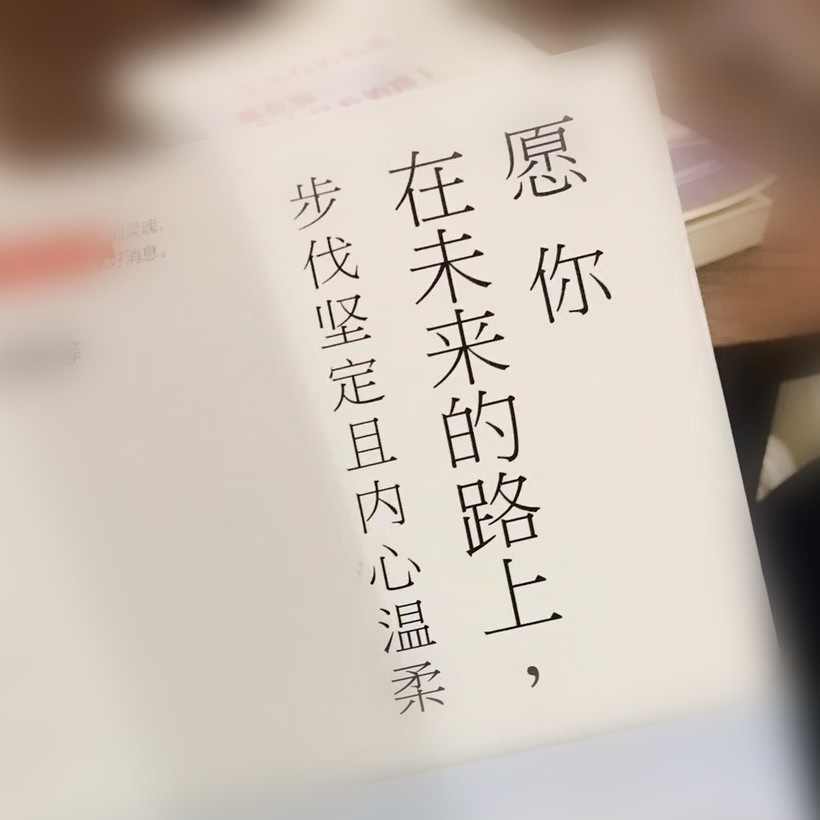 愿你
在未来的路上，
步伐坚定且内心温柔
好消息。